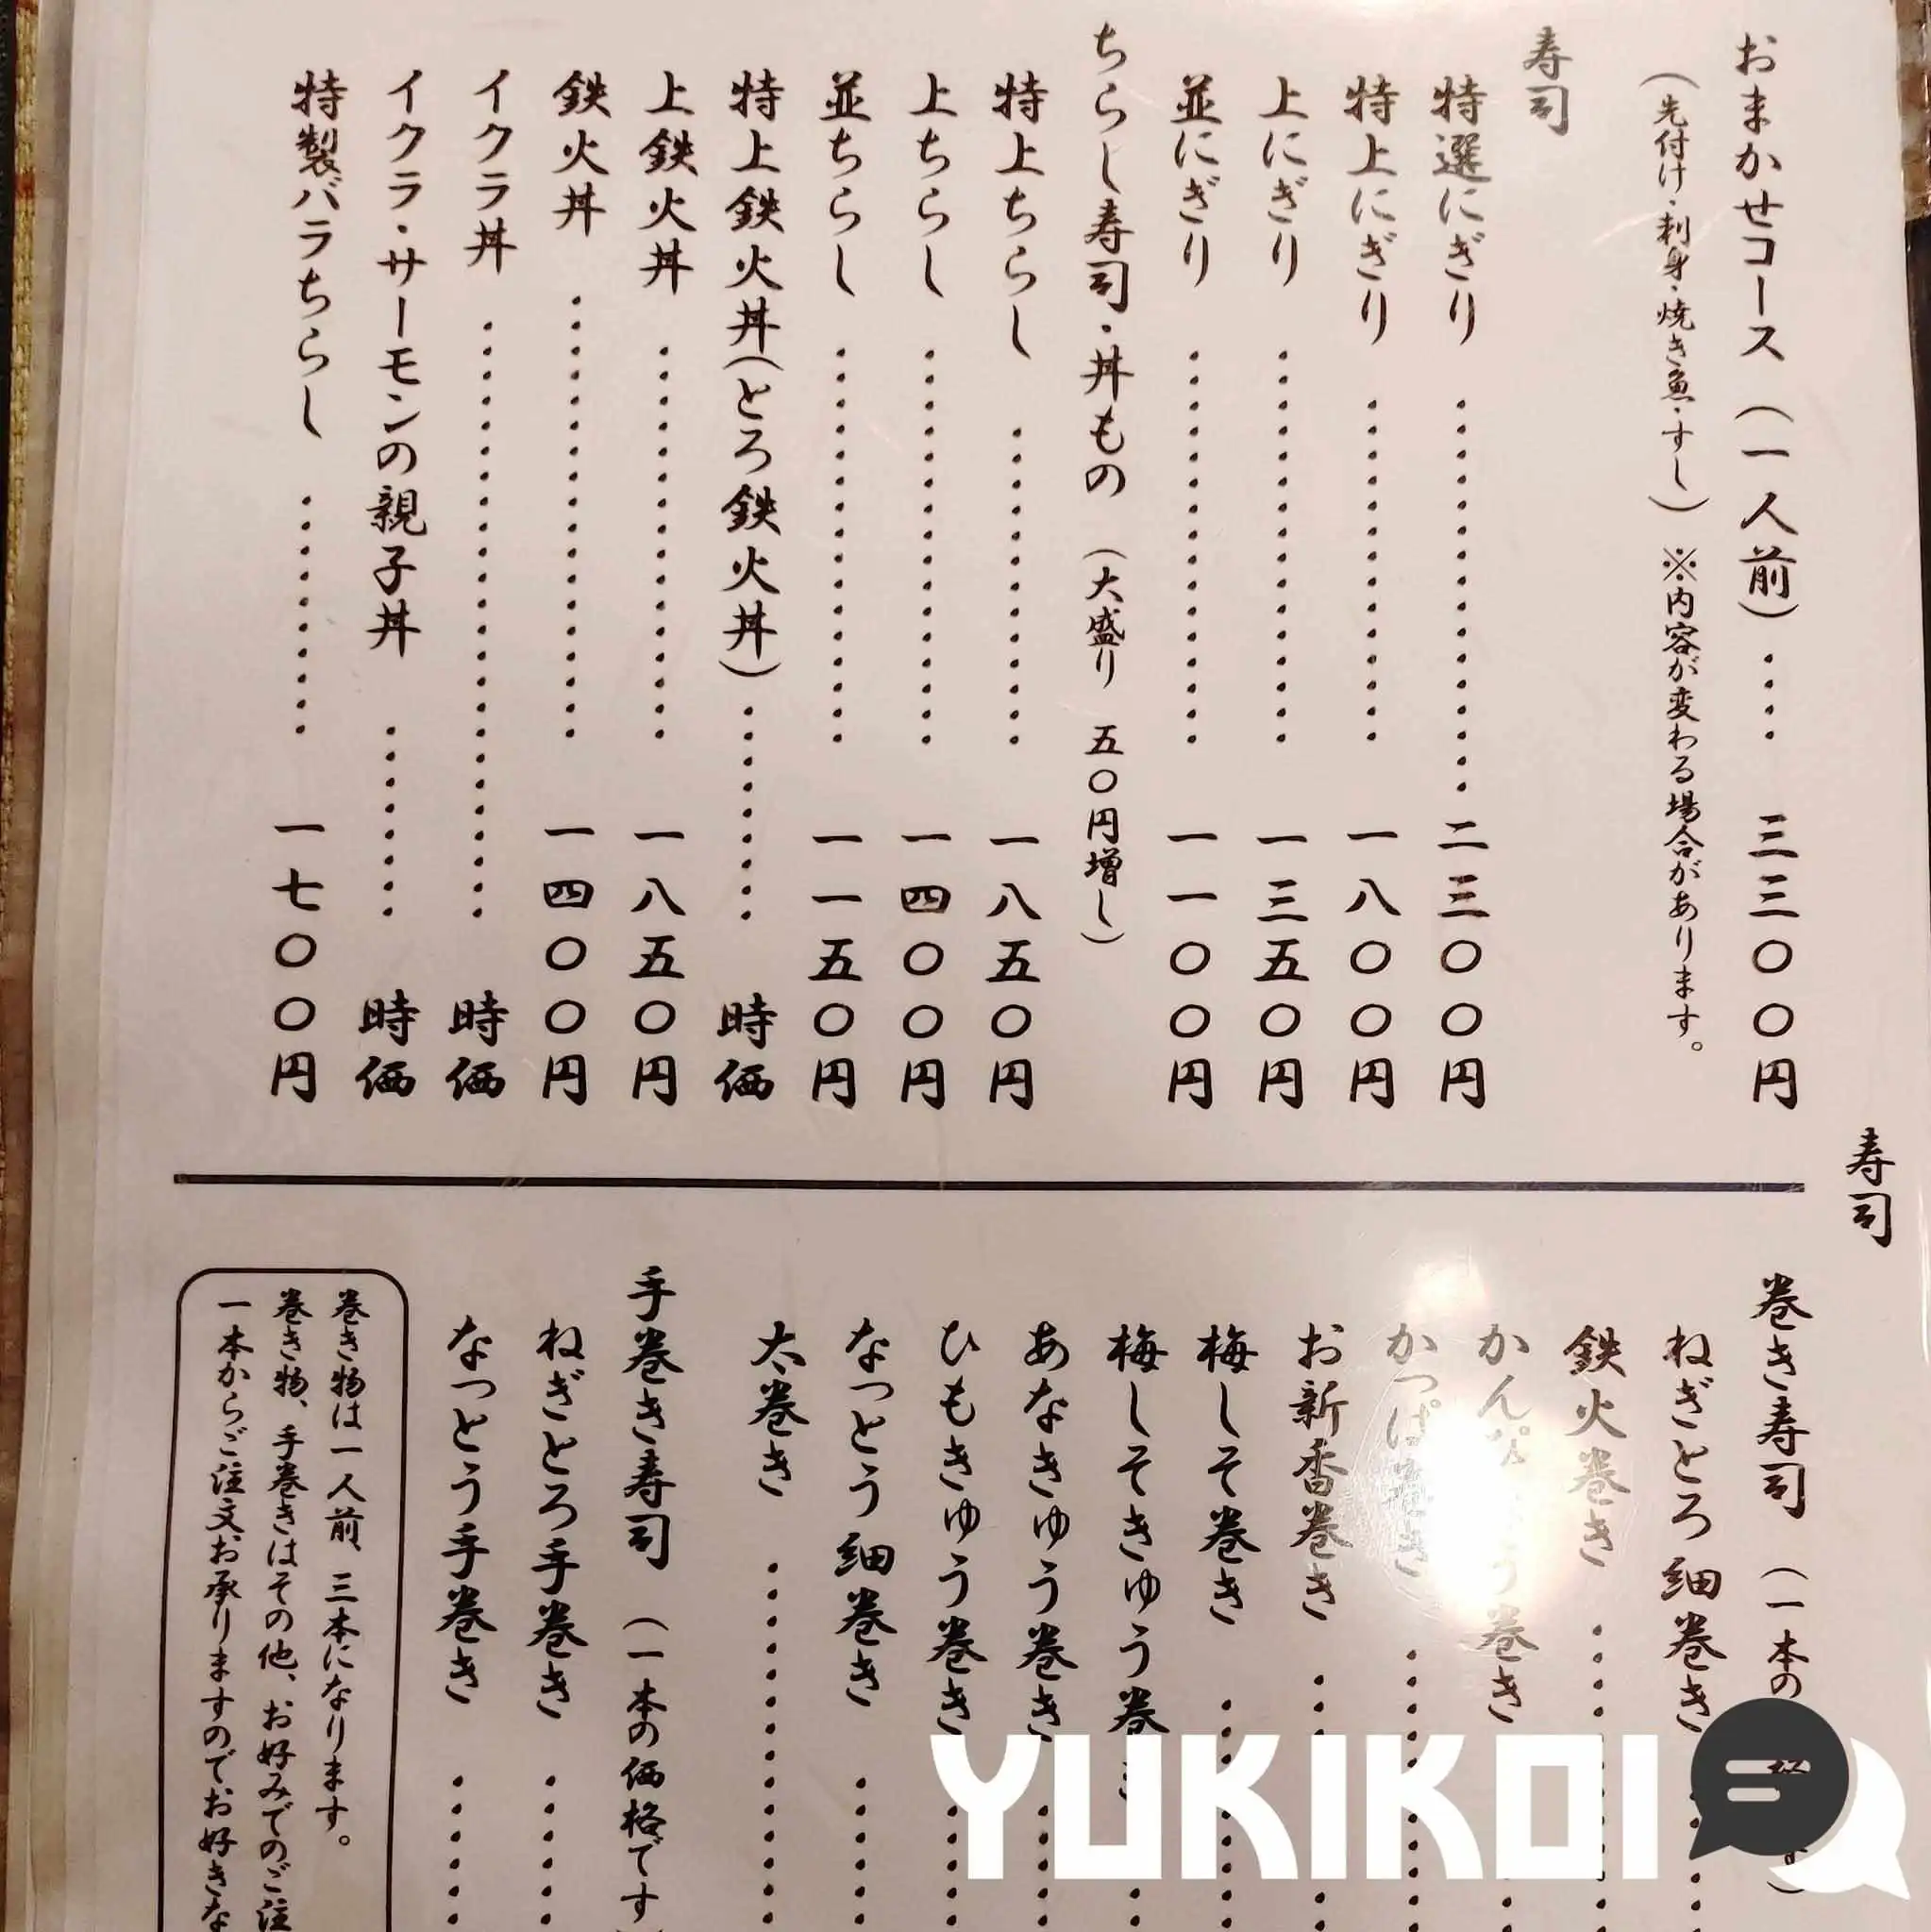 おまかせコース（一人前）‥‥三三〇〇円
（先付け・刺身・焼き魚・すし）※内容が変わる場合があります。
寿司
特選にぎり‥‥二三〇〇円
特上にぎり‥‥一八〇〇円
上にぎり‥‥一三五〇円
並にぎり‥‥一一〇〇円
ちらし寿司・丼もの（大盛り 五〇円増し）
特上ちらし‥‥一八五〇円
上ちらし‥‥一四〇〇円
並ちらし‥‥一一五〇円
特上鉄火丼（とろ鉄火丼）‥‥時価
上鉄火丼‥‥一八五〇円
鉄火丼‥‥一四〇〇円
イクラ丼‥‥時価
イクラ・サーモンの親子丼‥‥時価
特製バラちらし‥‥一七〇〇円
寿司
巻き寿司（一本の
ねぎとろ細巻き
鉄火巻き
かん 巻き
かっぱ巻き
お新香巻き
梅しそ巻き
梅しそきゅう巻き
あなきゅう巻き
ひもきゅう巻き
なっとう細巻き
太巻き
手巻き寿司（一本の価格です
ねぎとろ手巻き
なっとう手巻き
巻き物は一人前、三本になります。
巻き物、手巻きはその他、お好みでのご注
一本からご注文お承りますのでお好きな
YUKIKOI